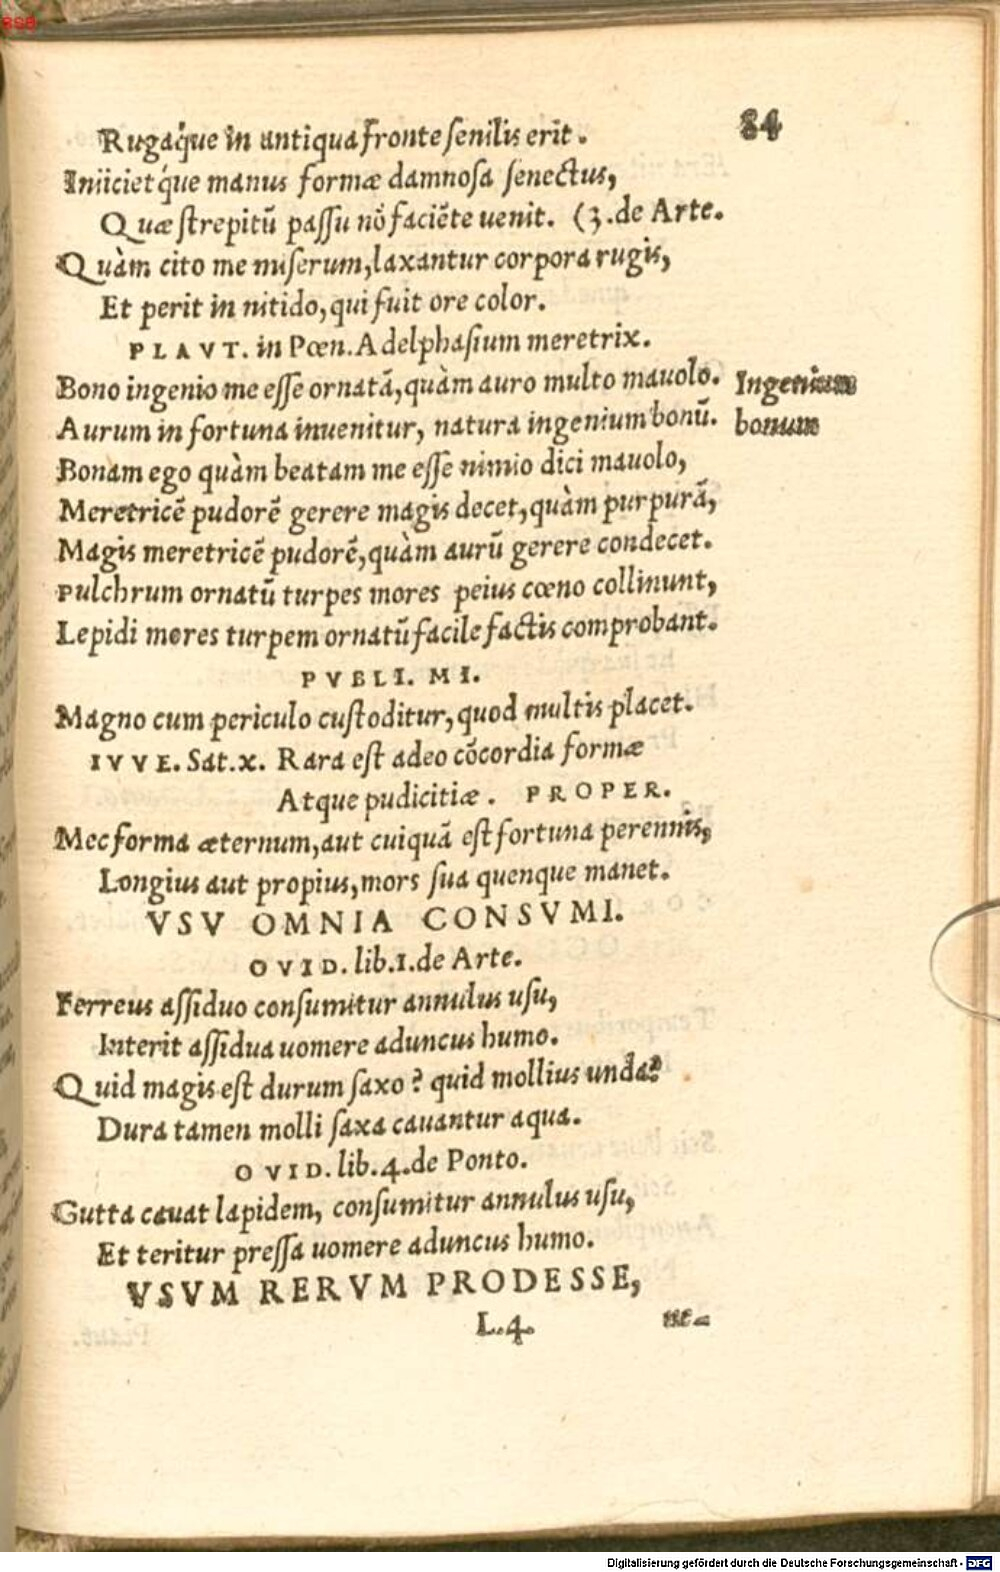 84
Rugaq́ue in antiqua fronte senilis erit.
Iniicietq́ue manus formæ damnosa senectus,
Quæ strepitū passu nō faciēte uenit. (3. de Arte.
Quàm cito me miserum, laxantur corpora rugis,
Et perit in nitido, qui fuit ore color.
PLAVT. in Pœn. Adelphasium meretrix.
Bono ingenio me esse ornatā, quàm auro multo mauolo.
Ingenium
Aurum in fortuna inuenitur, natura ingenium bonū.
bonum
Bonam ego quàm beatam me esse nimio dici mauolo,
Meretricē pudorē gerere magis decet, quàm purpurā,
Magis meretricē pudorē, quàm aurū gerere condecet.
Pulchrum ornatū turpes mores peius cœno collinunt,
Lepidi mores turpem ornatū facile factis comprobant.
PVBLI. MI.
Magno cum periculo custoditur, quod multis placet.
IVVE. Sat. x. Rara est adeo cōcordia formæ
Atque pudicitiæ. PROPER.
Mec forma æternum, aut cuiquā est fortuna perennis,
Longius aut propius, mors sua quenque manet.
VSV OMNIA CONSVMI.
OVID. lib. 1. de Arte.
Ferreus assiduo consumitur annulus usu,
Interit assidua uomere aduncus humo.
Quid magis est durum saxo? quid mollius unda?
Dura tamen molli saxa cauantur aqua.
OVID. lib. 4. de Ponto.
Gutta cauat lapidem, consumitur annulus usu,
Et teritur pressa uomere aduncus humo.
VSVM RERVM PRODESSE,
L.4.
Digitalisierung gefördert durch die Deutsche Forschungsgemeinschaft - DFG